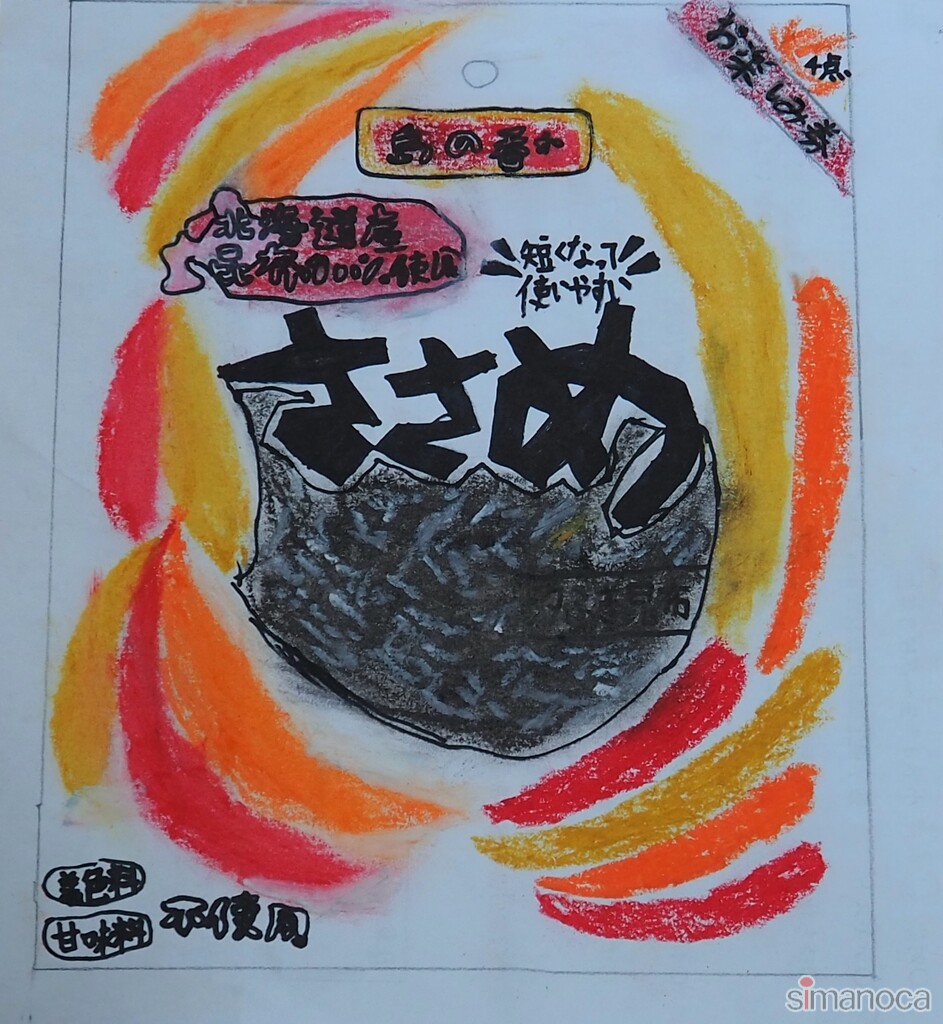 お楽しみ券
4点
島の香り
北海道産
昆布100%使用
短くなって
使いやすい
ささめ
着色料
甘味料 不使用
simanoca